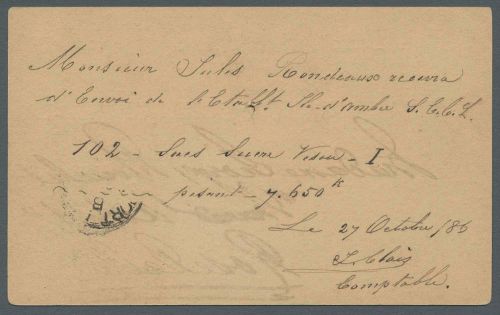 Monsieur Jules Rondeaux recevra
d'Envoi de l'Etablt Ste-d'ambre S.C.C.L.
102 - Sacs Sucre Vesou - I
pesant - 7.650 K
Le 27 Octobre /86
Comptable.